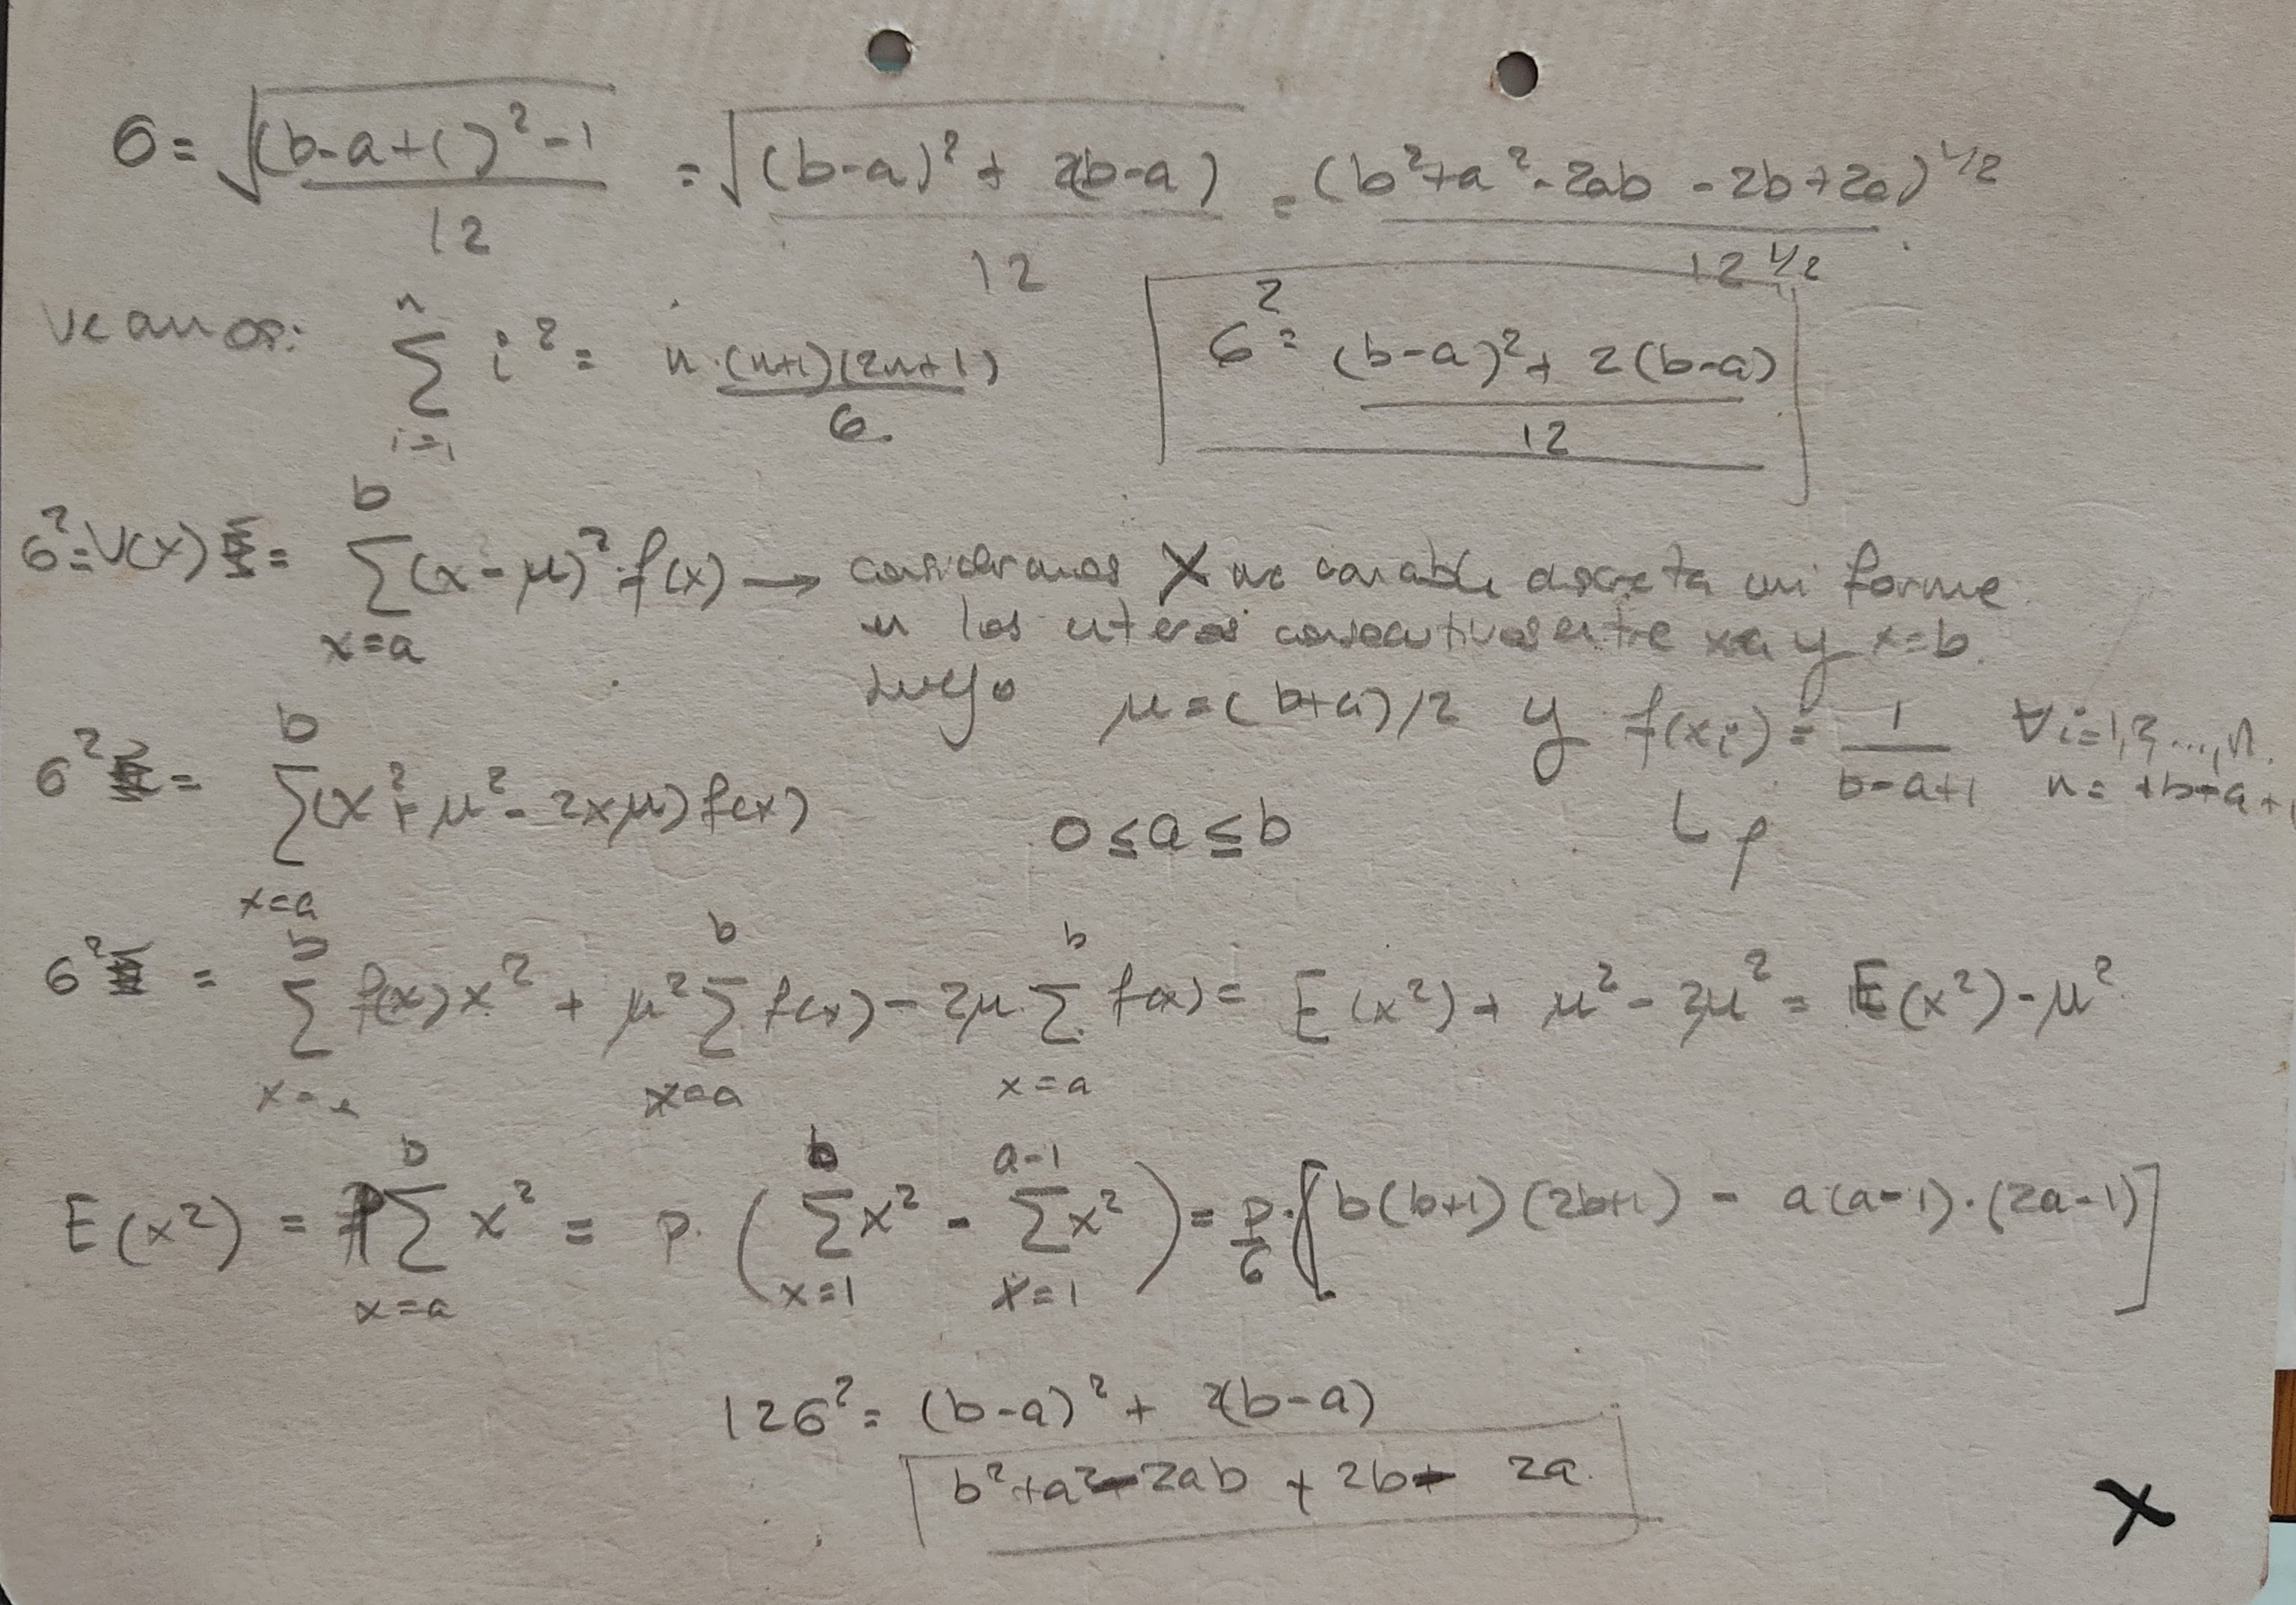 σ = √((b-a+1)²-1 / 12) = √((b-a)² + 2(b-a) / 12) = (b²+a²-2ab -2b+2a)^1/2 / 12^1/2
veamos: n Σ i=1 i² = n·(n+1)(2n+1) / 6. σ² = (b-a)² + 2(b-a) / 12
σ² = V(x) = b Σ x=a (x-μ)²·f(x) → consideramos X una variable discreta uniforme
en los enteros consecutivos entre x=a y x=b.
Luego μ = (b+a)/2 y f(xi) = 1 / b-a+1 ∀i=1,2,...,n.
n = +b-a+1
σ² = b Σ x=a (x²+μ²-2xμ) f(x) 0≤a≤b p
σ² = b Σ f(x)x² + μ² b Σ x=a f(x) - 2μ b Σ x=a f(x) = E(x²) + μ² - 2μ² = E(x²) - μ²
E(x²) = p b Σ x=a x² = p·( b Σ x=1 x² - a-1 Σ x=1 x² ) = p/6·[b(b+1)(2b+1) - a(a-1)·(2a-1)]
12σ² = (b-a)² + 2(b-a)
b²+a²-2ab + 2b - 2a
X